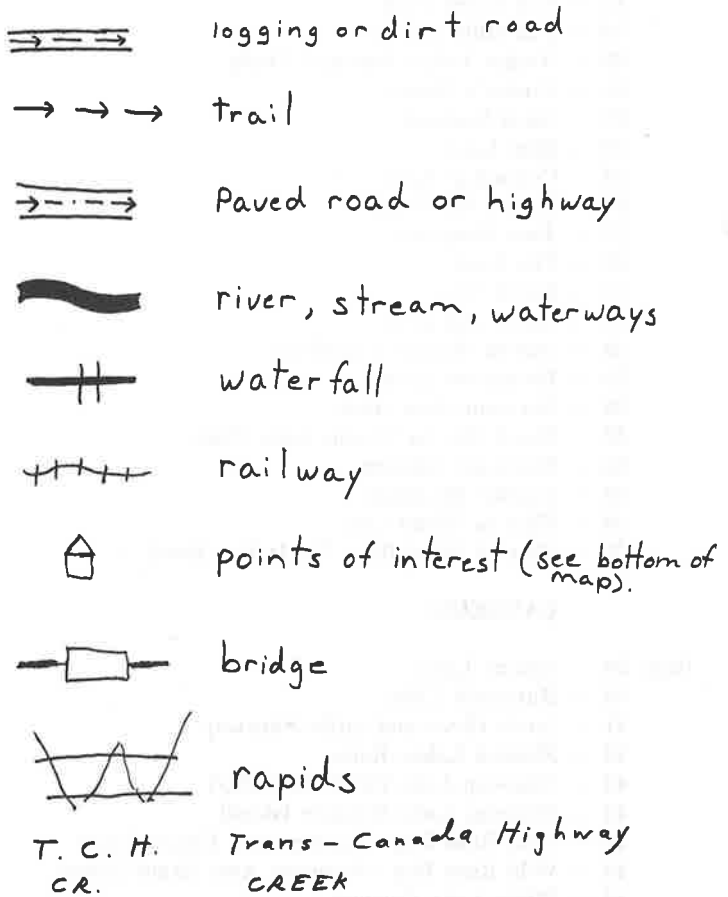 logging or dirt road
trail
Paved road or highway
river, stream, waterways
waterfall
railway
points of interest (see bottom of
map).
bridge
rapids
T. C. H. Trans-Canada Highway
CR. CREEK